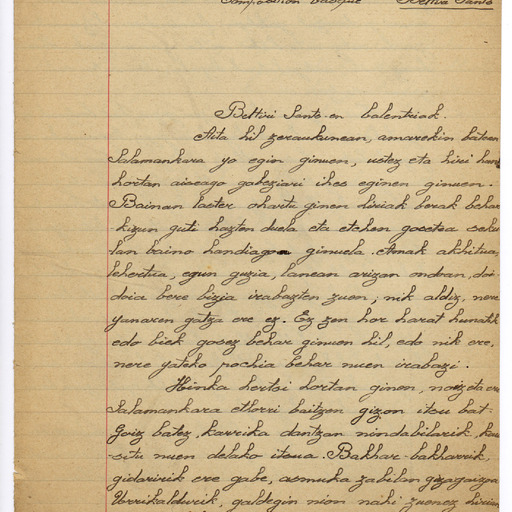 Composition basque Bettiri Santo
Bettiri Santo-en balentriak.
Aita hil zeraukunean, amarekin batean
Salamankara jo egin ginuen, ustez eta hiri hun
hortan aiseago gabeziari ihes eginen ginuen.
Bainan laster ohartu ginen hiriak berak behar-
kizun guti hazten duela eta etchen gosetea seku-
lan baino handiagoa ginuela. Amak akhitua,
lehertua, egun guzia, lanean arizan ondoan, doi-
doia bere bizia irabazten zuen; nik aldiz, nere
janaren gatza ere ez. Ez zen hor harat hunatik
edo biek gosez behar ginuen hil, edo nik ere,
nere jateko pochia behar nuen irabazi.
Hinka hertsi hortan ginen, noiz eta ere
Salamankara ethorri baitzen gizon itsu bat.
Goiz batez, karrika dantzan nindabilarik, kau-
situ nuen delako itsua. Bakhar-bakharrik,
gidaririk ere gabe, asmuka zabilan gizagaizoa
Urrikaldurik, galdegin nion nahi zuenez hirian